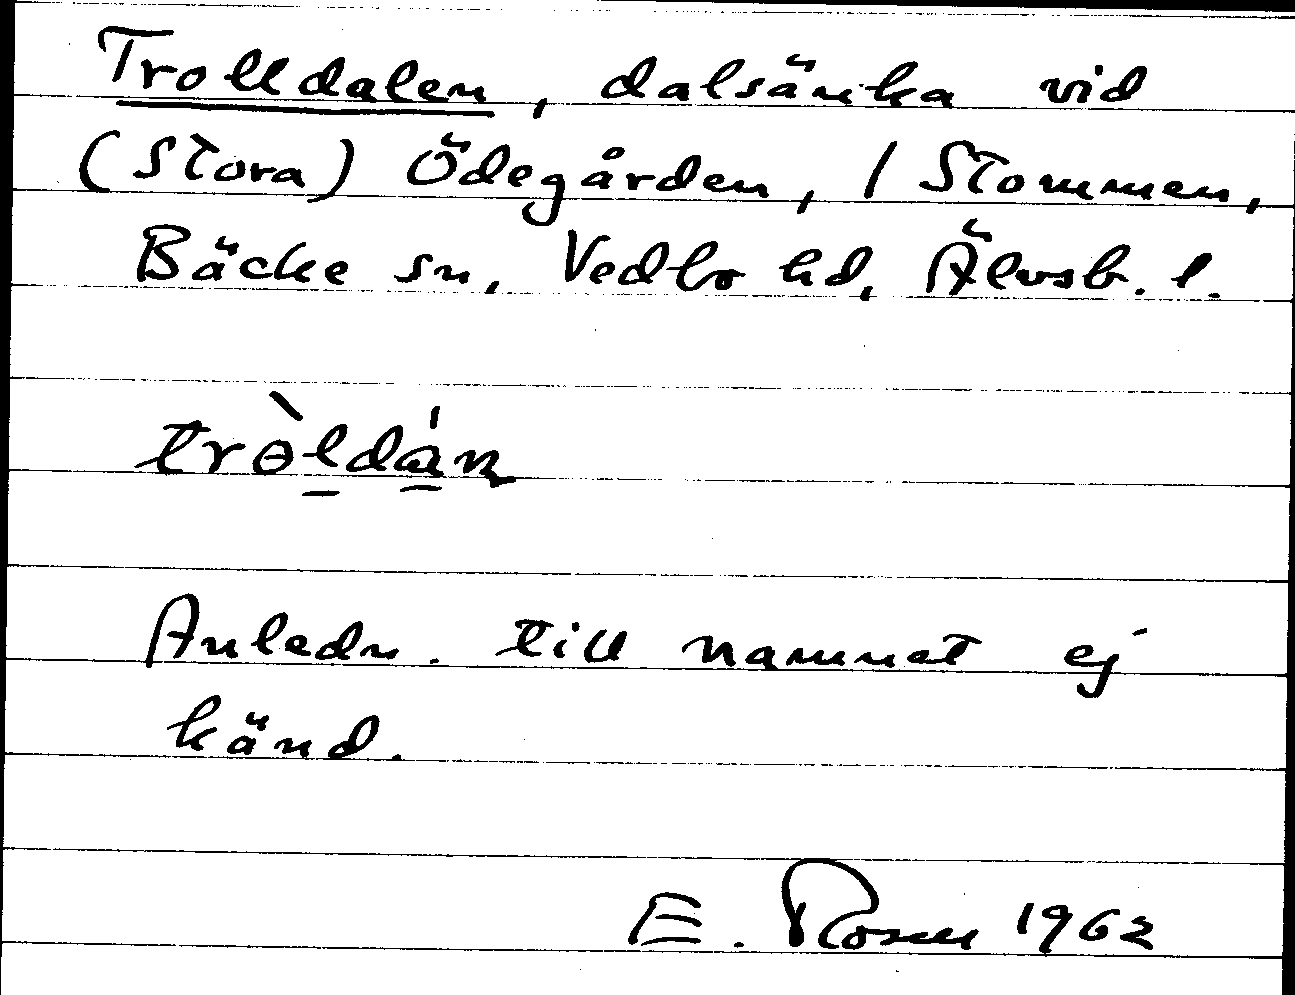 Trolldalen, dalsänka vid
(Stora) Ödegården, / Stommen,
Bäcke sn, Vedbo hd, Älvsb. l.
trɵ̀ldán
Anledn. till namnet ej
känd.
E. Rosen 1962